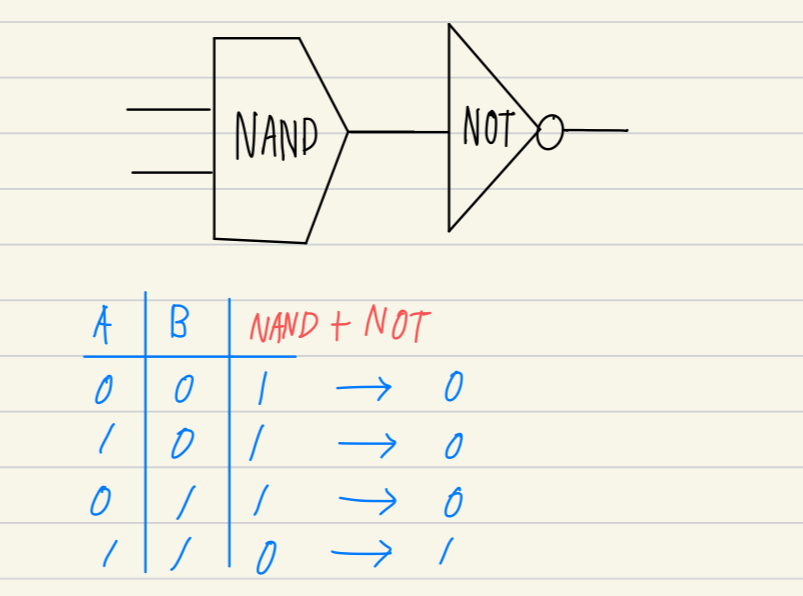 NAND NOT
A B NAND + NOT
0 0 1 → 0
1 0 1 → 0
0 1 1 → 0
1 1 0 → 1